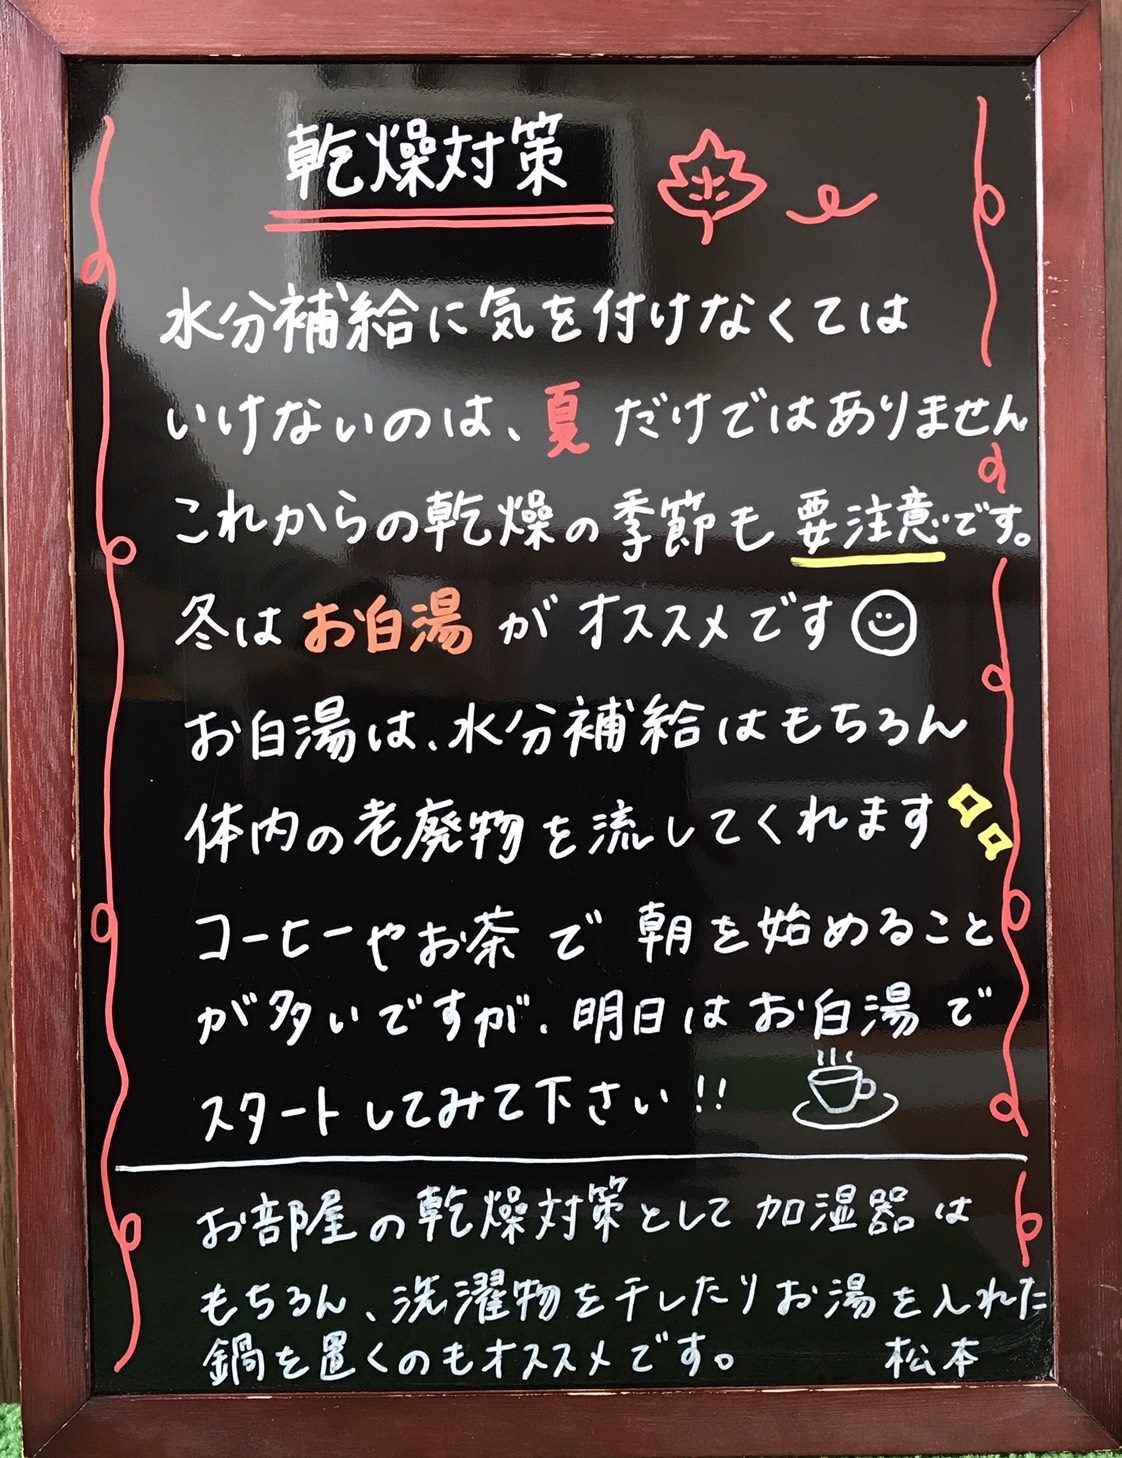 乾燥対策
水分補給に気を付けなくては
いけないのは、夏だけではありません
これからの乾燥の季節も要注意です。
冬はお白湯がオススメです
お白湯は、水分補給はもちろん
体内の老廃物を流してくれます
コーヒーやお茶で朝を始めること
が多いですが、明日はお白湯で
スタートしてみて下さい!!
お部屋の乾燥対策として加湿器は
もちろん、洗濯物を干したりお湯を入れた
鍋を置くのもオススメです。 松本